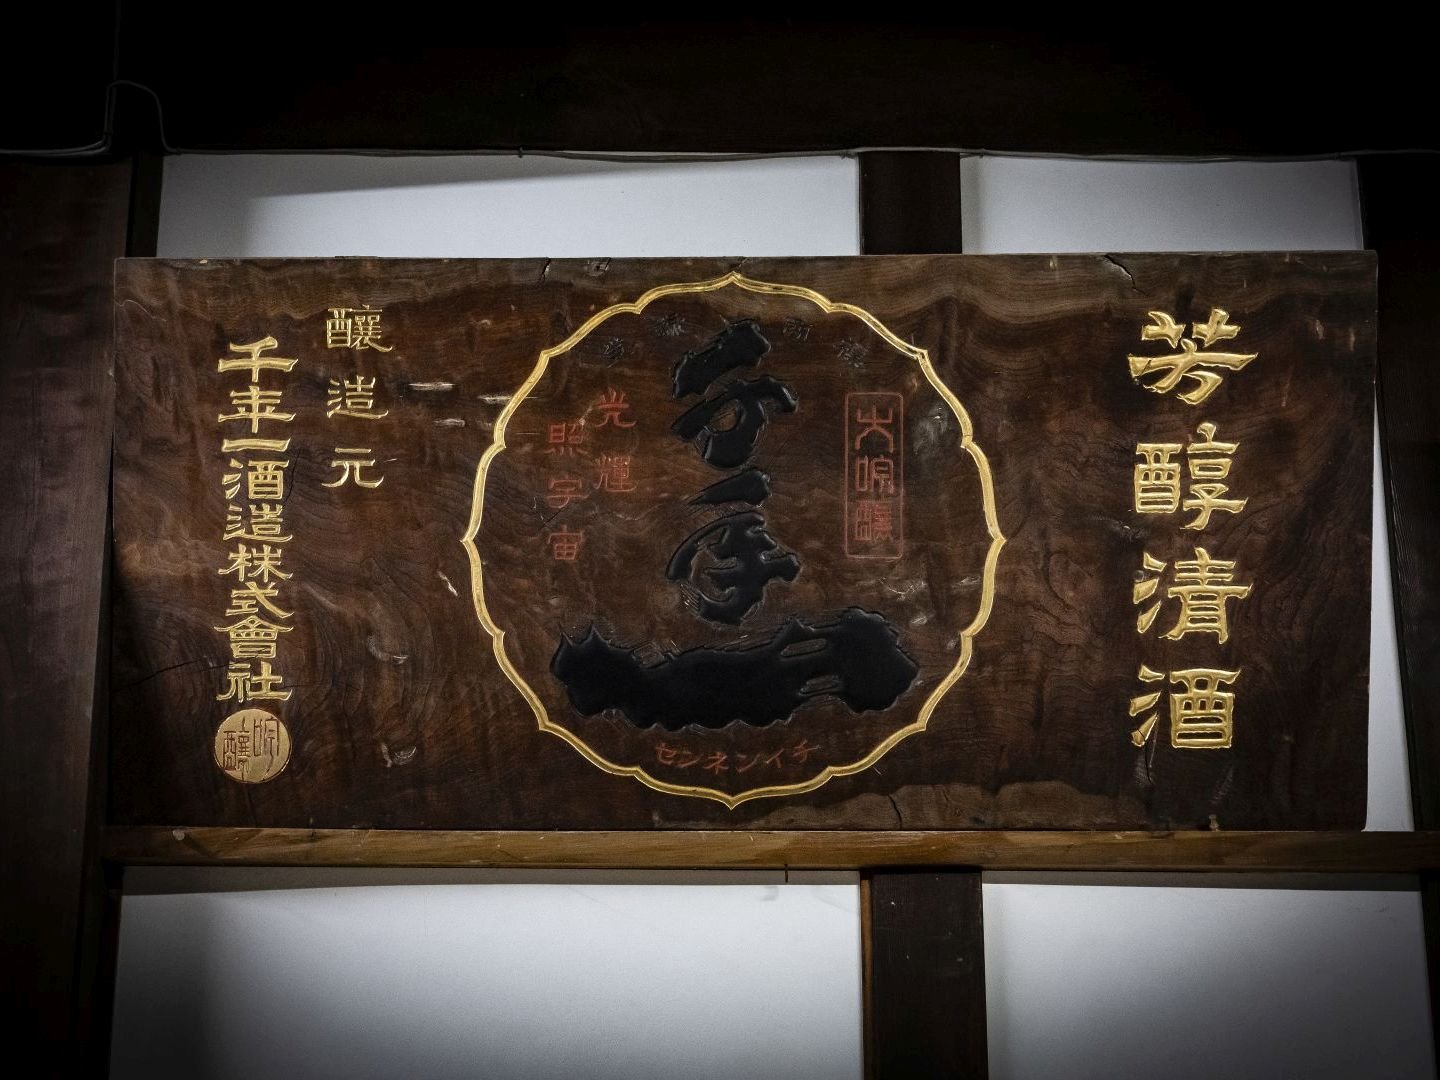 芳醇清酒
大吟醸
千年一
光輝
照宇宙
センネンイチ
醸造元
千年一酒造株式會社
吟醸